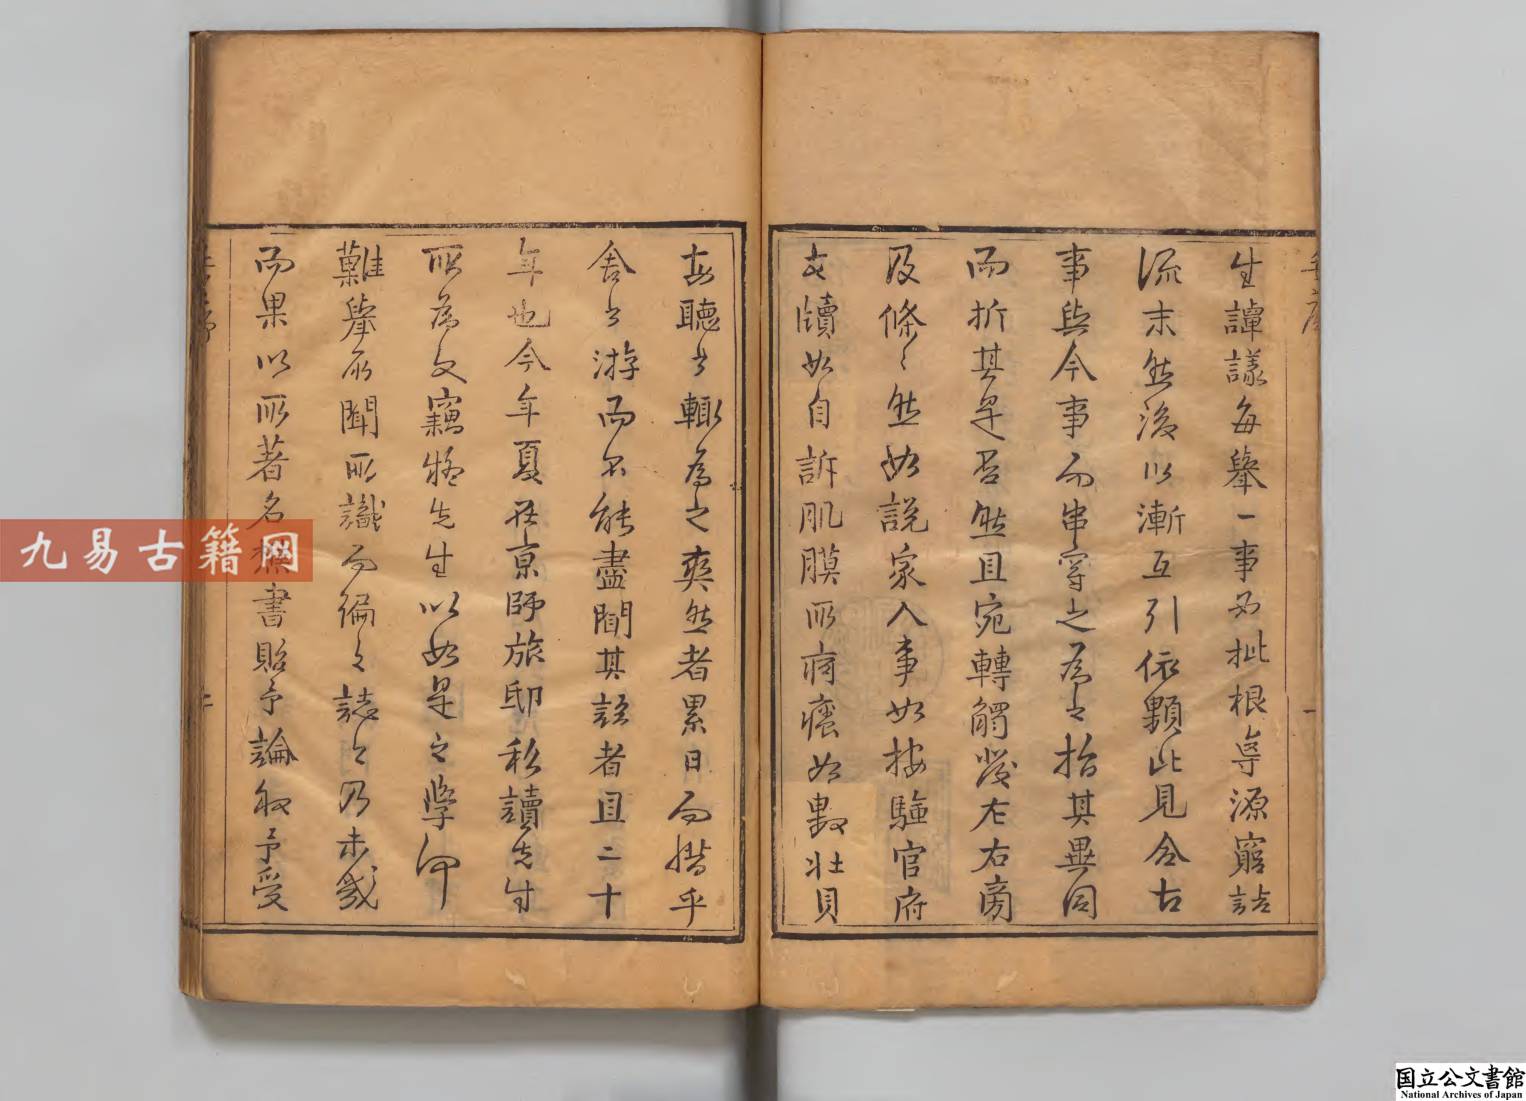 生譚議每舉一事必批根導源窮詰
流末然後以漸互引依顆此見令古
事與今事而串穿之為之指其異同
而折其是否然且宛轉觸發左右旁
及條〻然如說家人事如按驗官府
文牘如自訴肌膜所痾癢如數壯貝
每聽之輒為之爽然者累日而惜乎
舍之游而不能盡聞其語者且二十
年也今年夏在京師旅邸私讀先生
所為文竊嘆先生以如是之學何
難舉所聞所識而徧之誌之乃未幾
而果以所著名 書貽予論敘予受
九易古籍网
国立公文書館
National Archives of Japan